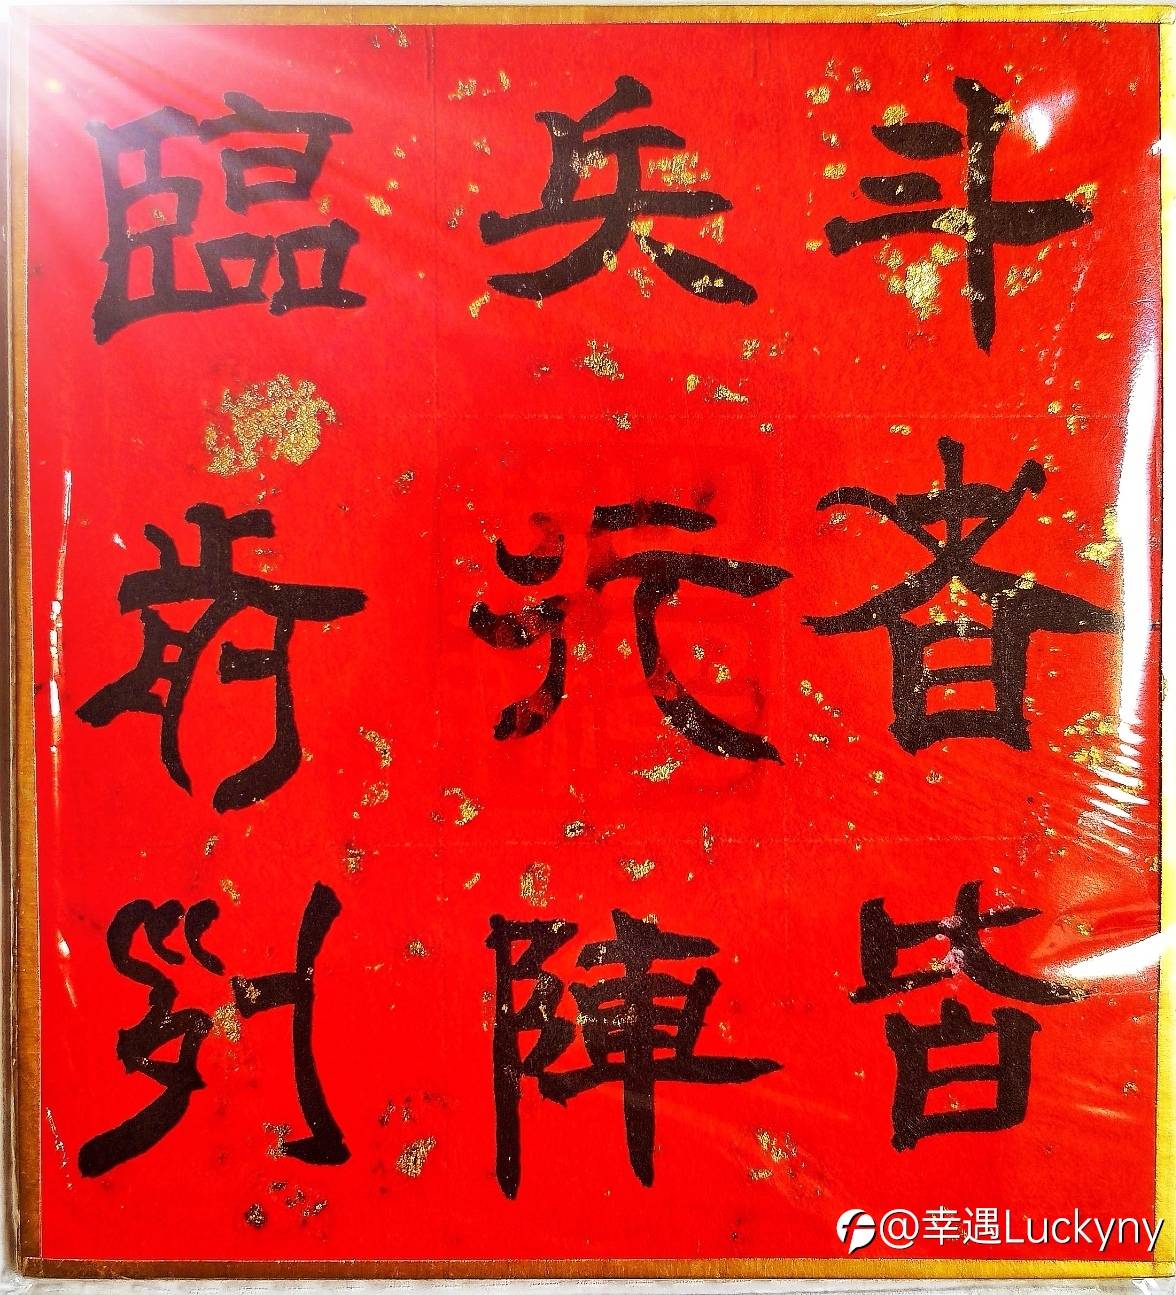 臨兵斗
前行者
列陣皆
@幸遇Luckyny